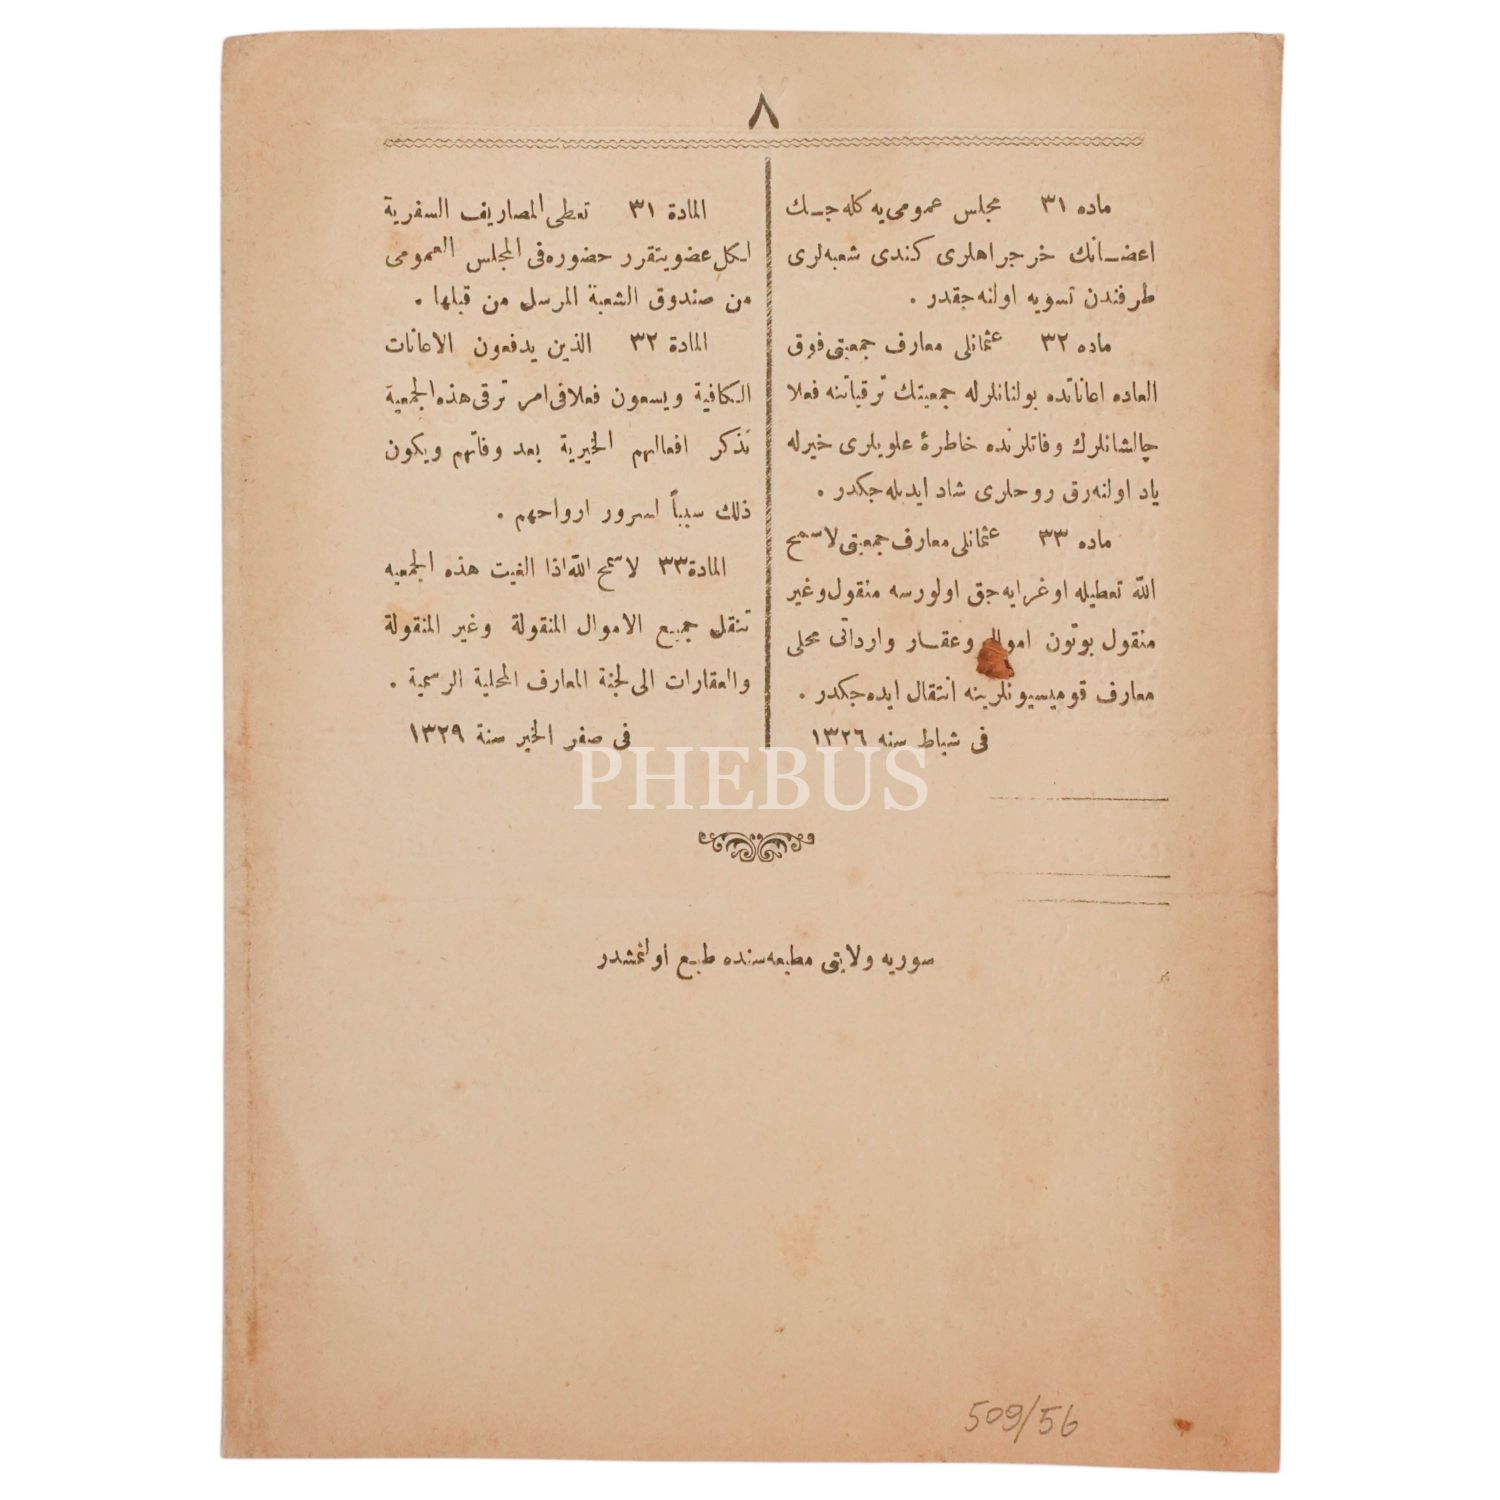 ٨
ماده ٣١ مجلس عمومی‌یه کله‌جـك
اعضـانك خرجراهلری کـندی شعبه‌لری
طرفندن تسویه اولنه‌جقدر .
ماده ٣٢ عثمانلی معارف جمعیتی فوق
العاده اعاناتده بولنانلرله جمعیتك ترقیاتنه فعلا
چالشانلرك وفاتلرنده خاطرهٔ علویلری خیرله
یاد اولنه‌رق روحلری شاد ایدیله‌جکدر .
ماده ٣٣ عثمانلی معارف جمعیتی لاسمح
الله تعطیله اوغرایه‌جق اولورسه منقول وغیر
منقول بوتون اموال وعقـار وارداتی محلی
معارف قومیسیونلرینه انتقال ایده‌جکدر .
فی شباط سنه ١٣٢٦
المادة ٣١ تعطى المصاريف السفرية
لكل عضو يتقرر حضوره فى المجلس العمومى
من صندوق الشعبة المرسل من قبلها .
المادة ٣٢ الذين يدفعون الاعانات
الكافية ويسعون فعلا فى امر ترقى هذه الجمعية
تذكر افعالهم الخيرية بعد وفاتهم ويكون
ذلك سبباً لسرور ارواحهم .
المادة ٣٣ لا سمح الله اذا الغيت هذه الجمعيه
تنقل جميع الاموال المنقولة وغير المنقولة
والعقارات الى لجنة المعارف المحلية الرسمية .
فى صفر الخير سنة ١٣٢٩
PHEBUS
سوریه ولایتی مطبعه‌سنده طبـع اولنمشدر
509/56